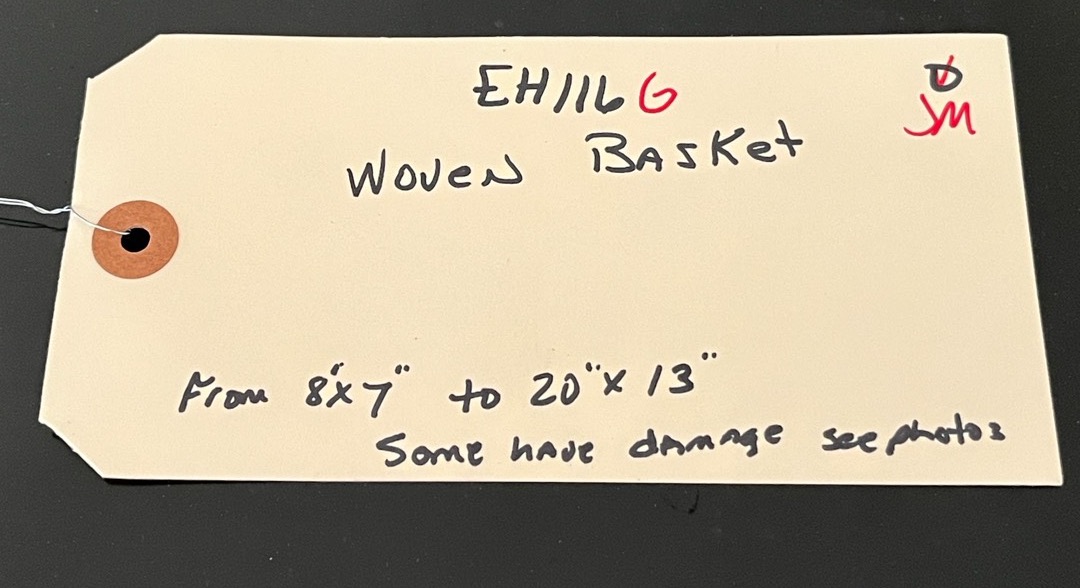 EH116 G
D
JM
Woven Basket
From 8"x7" to 20"x 13"
Some have damage see photos